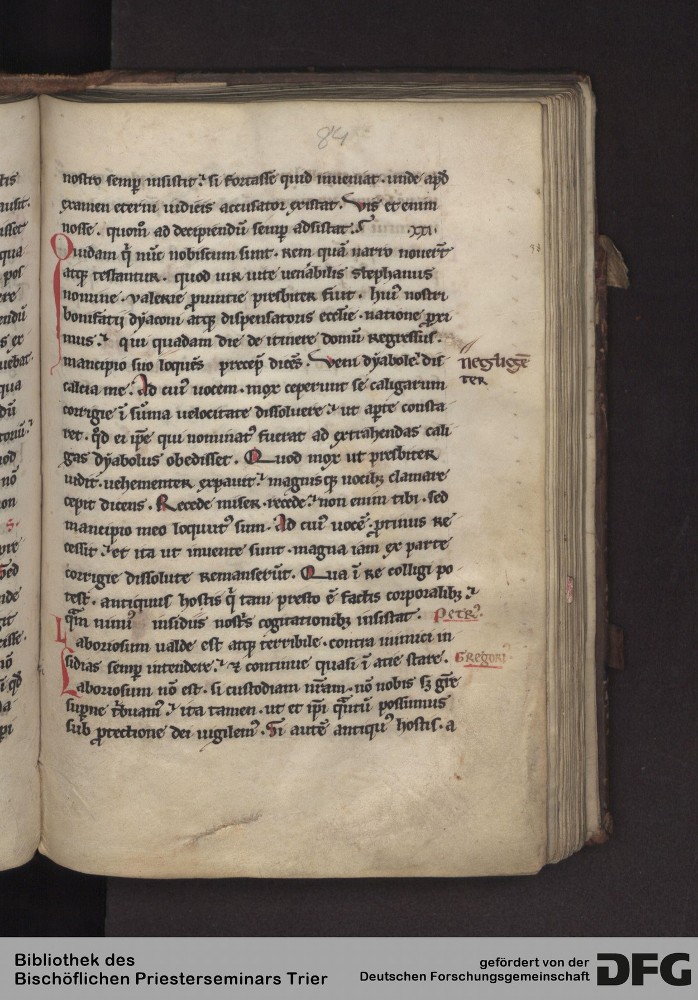 84
nostro semp insistit. si fortasse quid inueniat. unde apd
examen eterni iudicis accusator existat. Vis etenim
nosse. quom ad decipiendū semp adsistat. .xxi.
Quidam q̄ nūc nobiscum sunt. rem quā narro nouerūt
atq; testantur. quod uir uite uenabilis stephanus
nomine. ualerie puintie presbiter fuit. hui' nostri
bonifatii dyaconi atq; dispensatoris ecclesie. natione pxi
mus. qui quadam die de itinere domū regressus.
mancipio suo loques precep dices. Veni dyabole. dis
neglige
ter
calcia me. Ad cui' uocem. mox ceperunt se caligarum
corrigie ī sūma uelocitate dissoluere. ut apte consta
ret. qd ei ipe qui nominat' fuerat ad extrahendas cali
gas dyabolus obedisset. Quod mox ut presbiter
uidit. uehementer expauit. magnisq; uocib; clamare
cepit dicens. Recede miser. recede. non enim tibi. sed
mancipio meo locutus sum. Ad cui' uocē. protinus re
cessit. et ita ut inuente sunt. magna iam ex parte
corrigie dissolute remanserūt. Qua ī re colligi po
test. antiquus hostis q̄ tam presto ē factis corporalib;
qm nimi' insidiis nostris cogitationib; insistat. Petr'.
Laboriosum ualde est atq; terribile. contra inimici in
sidias semp intendere. & continue quasi ī acie stare. Gregori'
Laboriosum nō est. si custodiam nram. nō nobis sz gre
supne tbuam'. ita tamen. ut et ipi qntū possumus
sub ptectione dei uigilem'. Si autē antiqu' hostis. a
Bibliothek des
Bischöflichen Priesterseminars Trier
gefördert von der
Deutschen Forschungsgemeinschaft
DFG